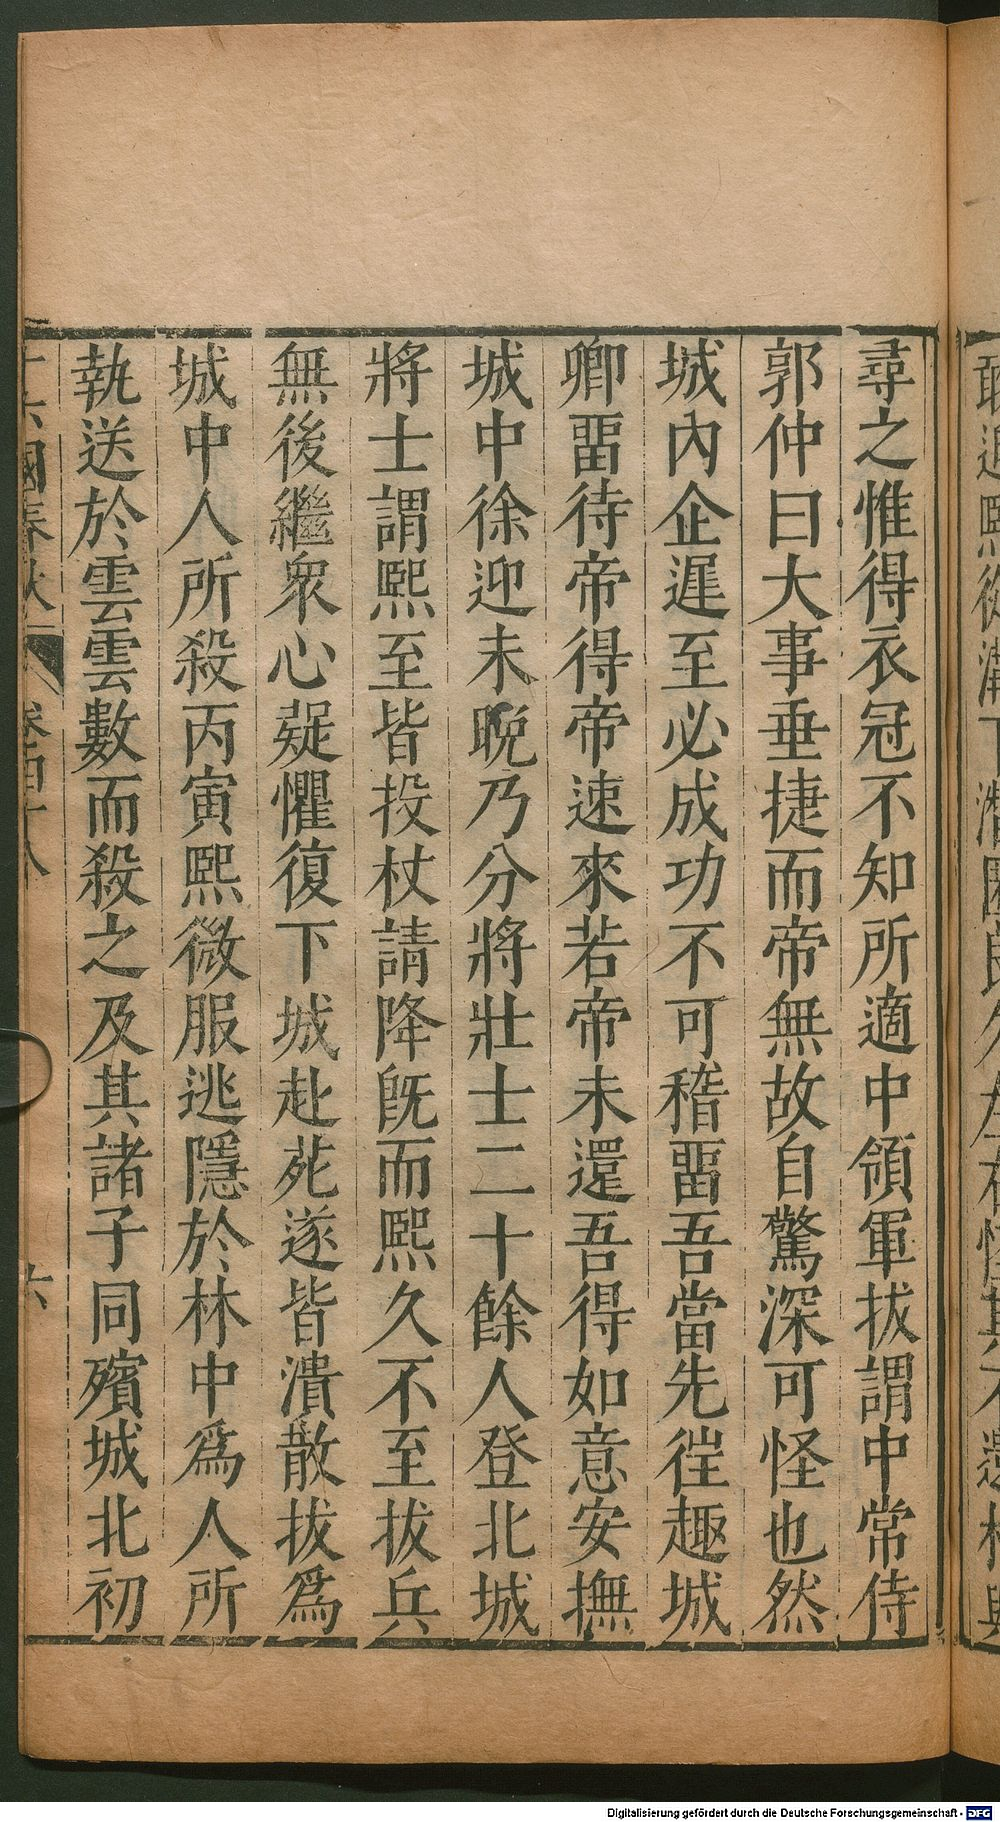 尋之惟得衣冠不知所適中領軍拔謂中常侍
郭仲曰大事垂捷而帝無故自驚深可怪也然
城內企遲至必成功不可稽畱吾當先徃趣城
卿畱待帝得帝速來若帝未還吾得如意安撫
城中徐迎未晩乃分將壯士二十餘人登北城
將士謂熙至皆投杖請降旣而熙久不至拔兵
無後繼衆心疑懼復下城赴苑遂皆潰散拔爲
城中人所殺丙寅熙微服逃隱於林中爲人所
執送於雲雲數而殺之及其諸子同殯城北初
十六國春秋 卷四十八 六
Digitalisierung gefördert durch die Deutsche Forschungsgemeinschaft - DFG